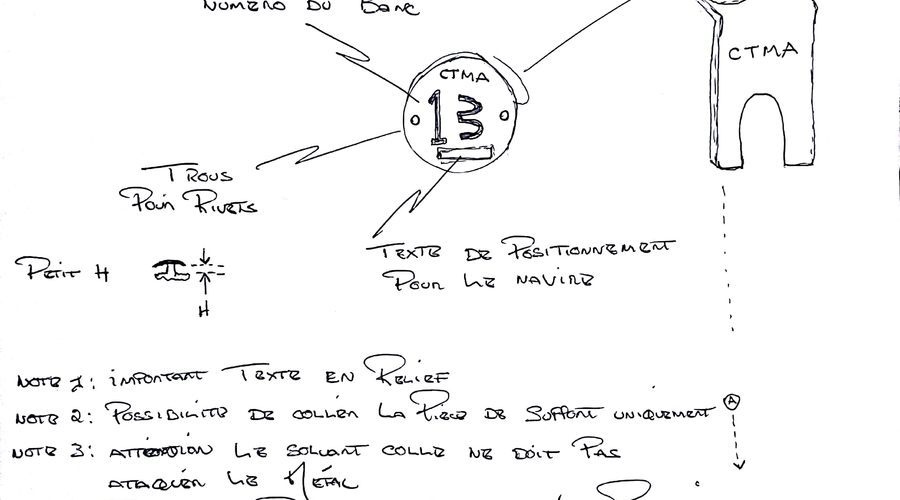 NUMÉRO DU BANC
CTMA
CTMA
13
TROUS
POUR RIVETS
TEXTE DE POSITIONNEMENT
POUR LE NAVIRE
PETIT H
H
NOTE 1: IMPORTANT TEXTE EN RELIEF
NOTE 2: POSSIBILITÉ DE COLLER LA PIÈCE DE SUPPORT UNIQUEMENT A
NOTE 3: ATTENTION LE SOLVANT COLLE NE DOIT PAS
ATTAQUER LE MÉTAL